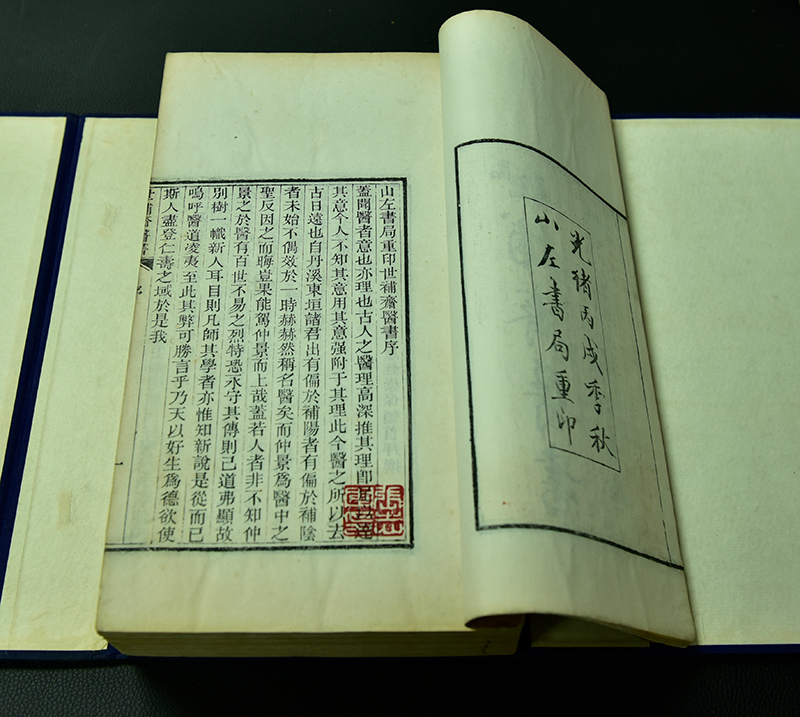 光緒丙戌季秋
山左書局重印
山左書局重印世補齋醫書序
蓋聞醫者意也亦理也古人之醫理高深推其理卽
其意今人不知其意用其意强附于其理此今醫之所以去
古日遠也自丹溪東垣諸君出有偏於補陽者有偏於補陰
者未始不偶效於一時赫赫然稱名醫矣而仲景爲醫中之
聖反因之而晦豈果能駕仲景而上哉蓋若人者非不知仲
景之於醫有百世不易之烈特恐永守其傳則己道弗顯故
別樹一幟新人耳目則凡師其學者亦惟知新說是從而已
嗚呼醫道凌夷至此其弊可勝言乎乃天以好生爲德欲使
斯人盡登仁壽之域於是我
世補齋醫書 序 一